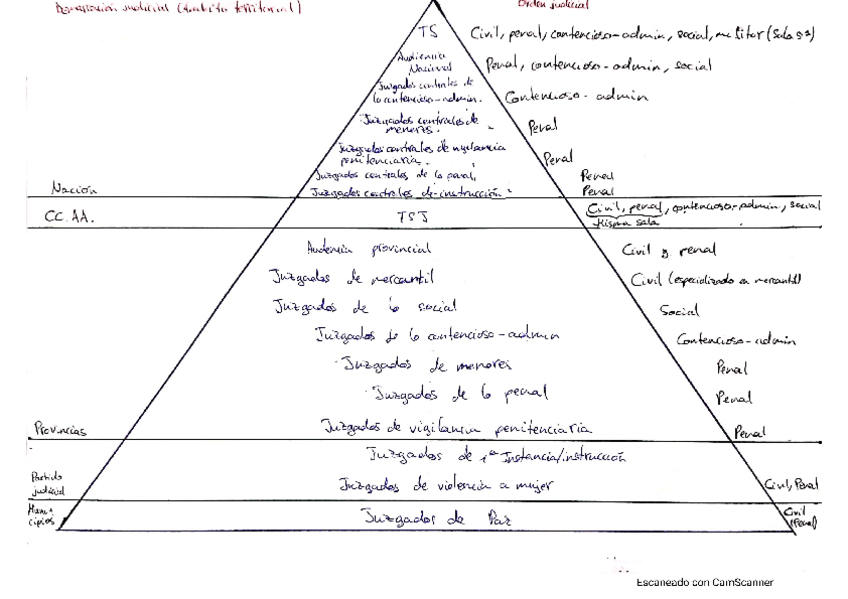 Demarcación judicial (ámbito territorial)
Orden judicial
TS
Civil, penal, contencioso-admin, social, militar (Sala 5ª)
Audiencia
Nacional
Penal, contencioso-admin, social
Juzgados centrales de
lo contencioso-admin.
Contencioso-admin
Juzgados centrales de
menores.
Penal
Juzgados centrales de vigilancia
penitenciaria.
Penal
Juzgados centrales de lo penal,
Penal
Nación
Juzgados centrales de instrucción.
Penal
CC.AA.
TSJ
Civil, penal, contencioso-admin, social
Misma sala
Audiencia provincial
Civil y penal
Juzgados de mercantil
Civil (especializado en mercantil)
Juzgados de lo social
Social
Juzgados de lo contencioso-admin
Contencioso-admin
Juzgados de menores
Penal
Juzgados de lo penal
Penal
Provincias
Juzgados de vigilancia penitenciaria
Penal
Juzgados de 1ª Instancia/instrucción
Partido
judicial
Juzgados de violencia a mujer
Civil, Penal
Muni-
cipios
Juzgados de Paz
Civil
(Penal)
Escaneado con CamScanner